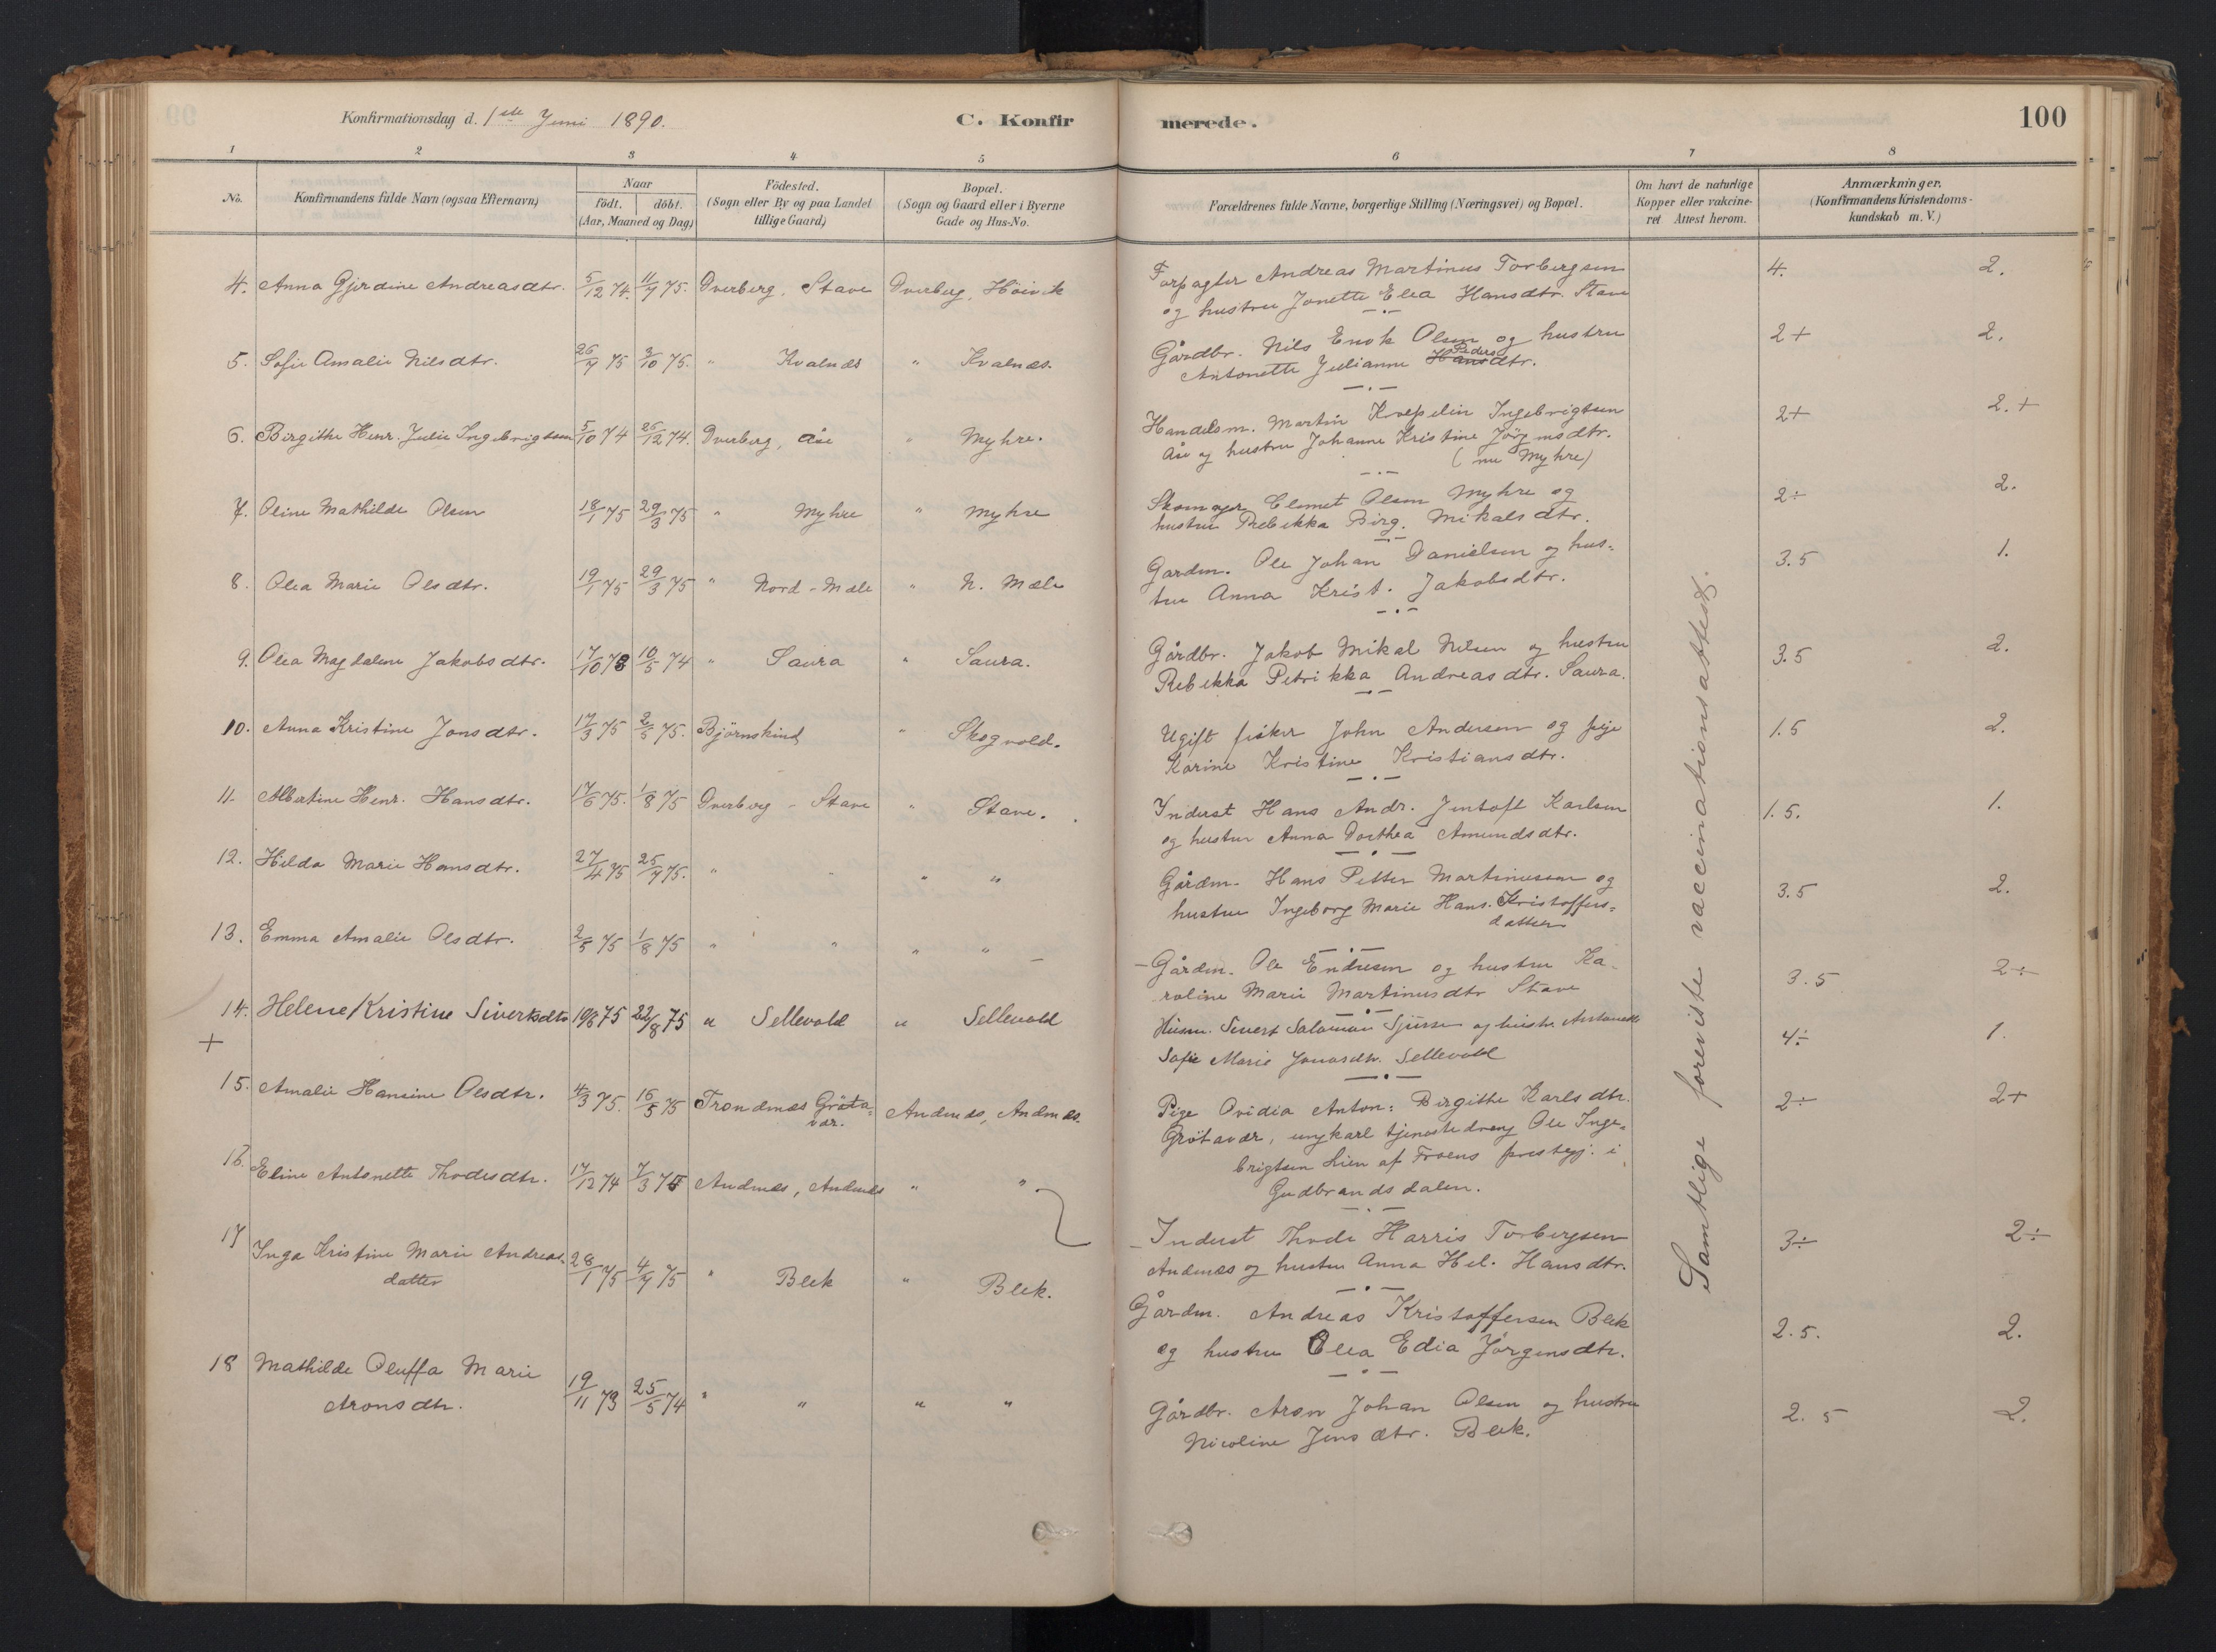 Konfirmationsdag d. 1ste Juni 1890. C. Konfir merede. 100
1 2 3 4 5 6 7 8
No. Konfirmandens fulde Navn (ogsaa Efternavn) Naar födt. döbt. (Aar, Maaned og Dag) Födested. (Sogn eller By og paa Landet tillige Gaard) Bopæl. (Sogn og Gaard eller i Byerne Gade og Hus-No. Forældrenes fulde Navne, borgerlige Stilling (Næringsvei) og Bopæl. Om havt de naturlige Kopper eller vakcineret. Attest herom. Anmærkninger. (Konfirmandens Kristendomskundskab m. V.)
4. Anna Gjördine Andreasdtr. 5/12 74. 11/7 75. Dverberg, Stave Dverberg, Höivik Forpagter Andreas Martinus Torbergsen 4. 2.
og hustru Jonette Elea Hansdtr. Stave
5. Sofie Amalie Nilsdtr. 26/7 75 3/10 75. " Kvalnæs " Kvalnæs. Gårdbr. Nils Enok Olsen og hustru 2+ 2.
Antonette Julianne Hans Pedersdtr.
6. Birgithe Henr. Julie Ingebrigtsen 5/10 74 26/12 74. Dverberg, Åse " Myhre. Handelsm. Martin Kræpelin Ingebrigtsen 2+ 2.+
Åse og hustru Johanne Kristine Jörgensdtr.
(nu Myhre)
7. Oline Mathilde Olsen 18/1 75 29/3 75 " Myhre " Myhre Skomager Clemet Olsen Myhre og 2÷ 2.
hustru Rebekka Birg. Mikalsdtr.
8. Olea Marie Olsdtr. 19/1 75 29/3 75 " Nord-Mæle " N. Mæle Gardm. Ole Johan Danielsen og hus= 3.5 1.
tru Anna Krist. Jakobsdtr.
9. Olea Magdalene Jakobsdtr. 17/10 73 10/5 74 " Saura " Saura. Gårdbr. Jakob Mikal Nilsen og hustru 3.5 2.
Rebekka Petrikka Andreasdtr. Saura.
10. Anna Kristine Jonsdtr. 17/3 75 2/5 75. Björnskind " Skogvold. Ugift fisker John Andersen og pige 1.5 2.
Karine Kristine Kristiansdtr.
11. Albertine Henr. Hansdtr. 17/6 75. 1/8 75 Dverberg - Stave " Stave. Inderst Hans Andr. Jentoft Karlsen 1.5. 1.
og hustru Anna Dorthea Amundsdtr.
12. Hilda Marie Hansdtr. 27/4 75 25/7 75. " " " " Gårdm. Hans Petter Martinussen og 3.5 2.
hustru Ingeborg Marie Hans. Kristoffers=
datter
13. Emma Amalie Olsdtr. 2/5 75 1/8 75 " " " " Gårdm. Ole Endresen og hustru Ka- 3.5 2÷
roline Marie Martinusdtr Stave
14. Helene Kristine Sivertsdtr 19/6 75 22/8 75 " Sellevold " Sellevold Husm. Sivert Salomon Sjursen og hustr. Antonette 4÷ 1.
+ Sofie Marie Jonasdtr. Sellevold
15. Amalie Hansine Olsdtr. 4/3 75. 16/5 75 Trondenæs Gröta=vær. Andenæs, Andenæs. Pige Ovidia Anton: Birgithe Karlsdtr. 2÷ 2+
Grötavær, ungkarl tjenestedreng Ole Inge=
brigtsen Lien af Froens prestegj. i
Gudbrandsdalen.
16. Eline Antonette Thodesdtr. 17/12 74 7/3 75 Andenæs, Andenæs " " Inderst Thode Harris Torbergsen 3÷ 2÷
Andenæs og hustru Anna Hel. Hansdtr.
17 Inga Kristine Marie Andreas=datter 28/1 75 4/7 75 " Bleik " Bleik. Gårdm. Andreas Kristoffersen Bleik 2.5. 2.
og hustru Olea Edia Jörgensdtr.
18 Mathilde Oluffa Marie Aronsdtr. 19/11 73 25/5 74 " " " " Gårdbr. Aron Johan Olsen og hustru 2.5 2.
Nicoline Jensdtr. Bleik.
Samtlige foreviste vaccinationsattest.